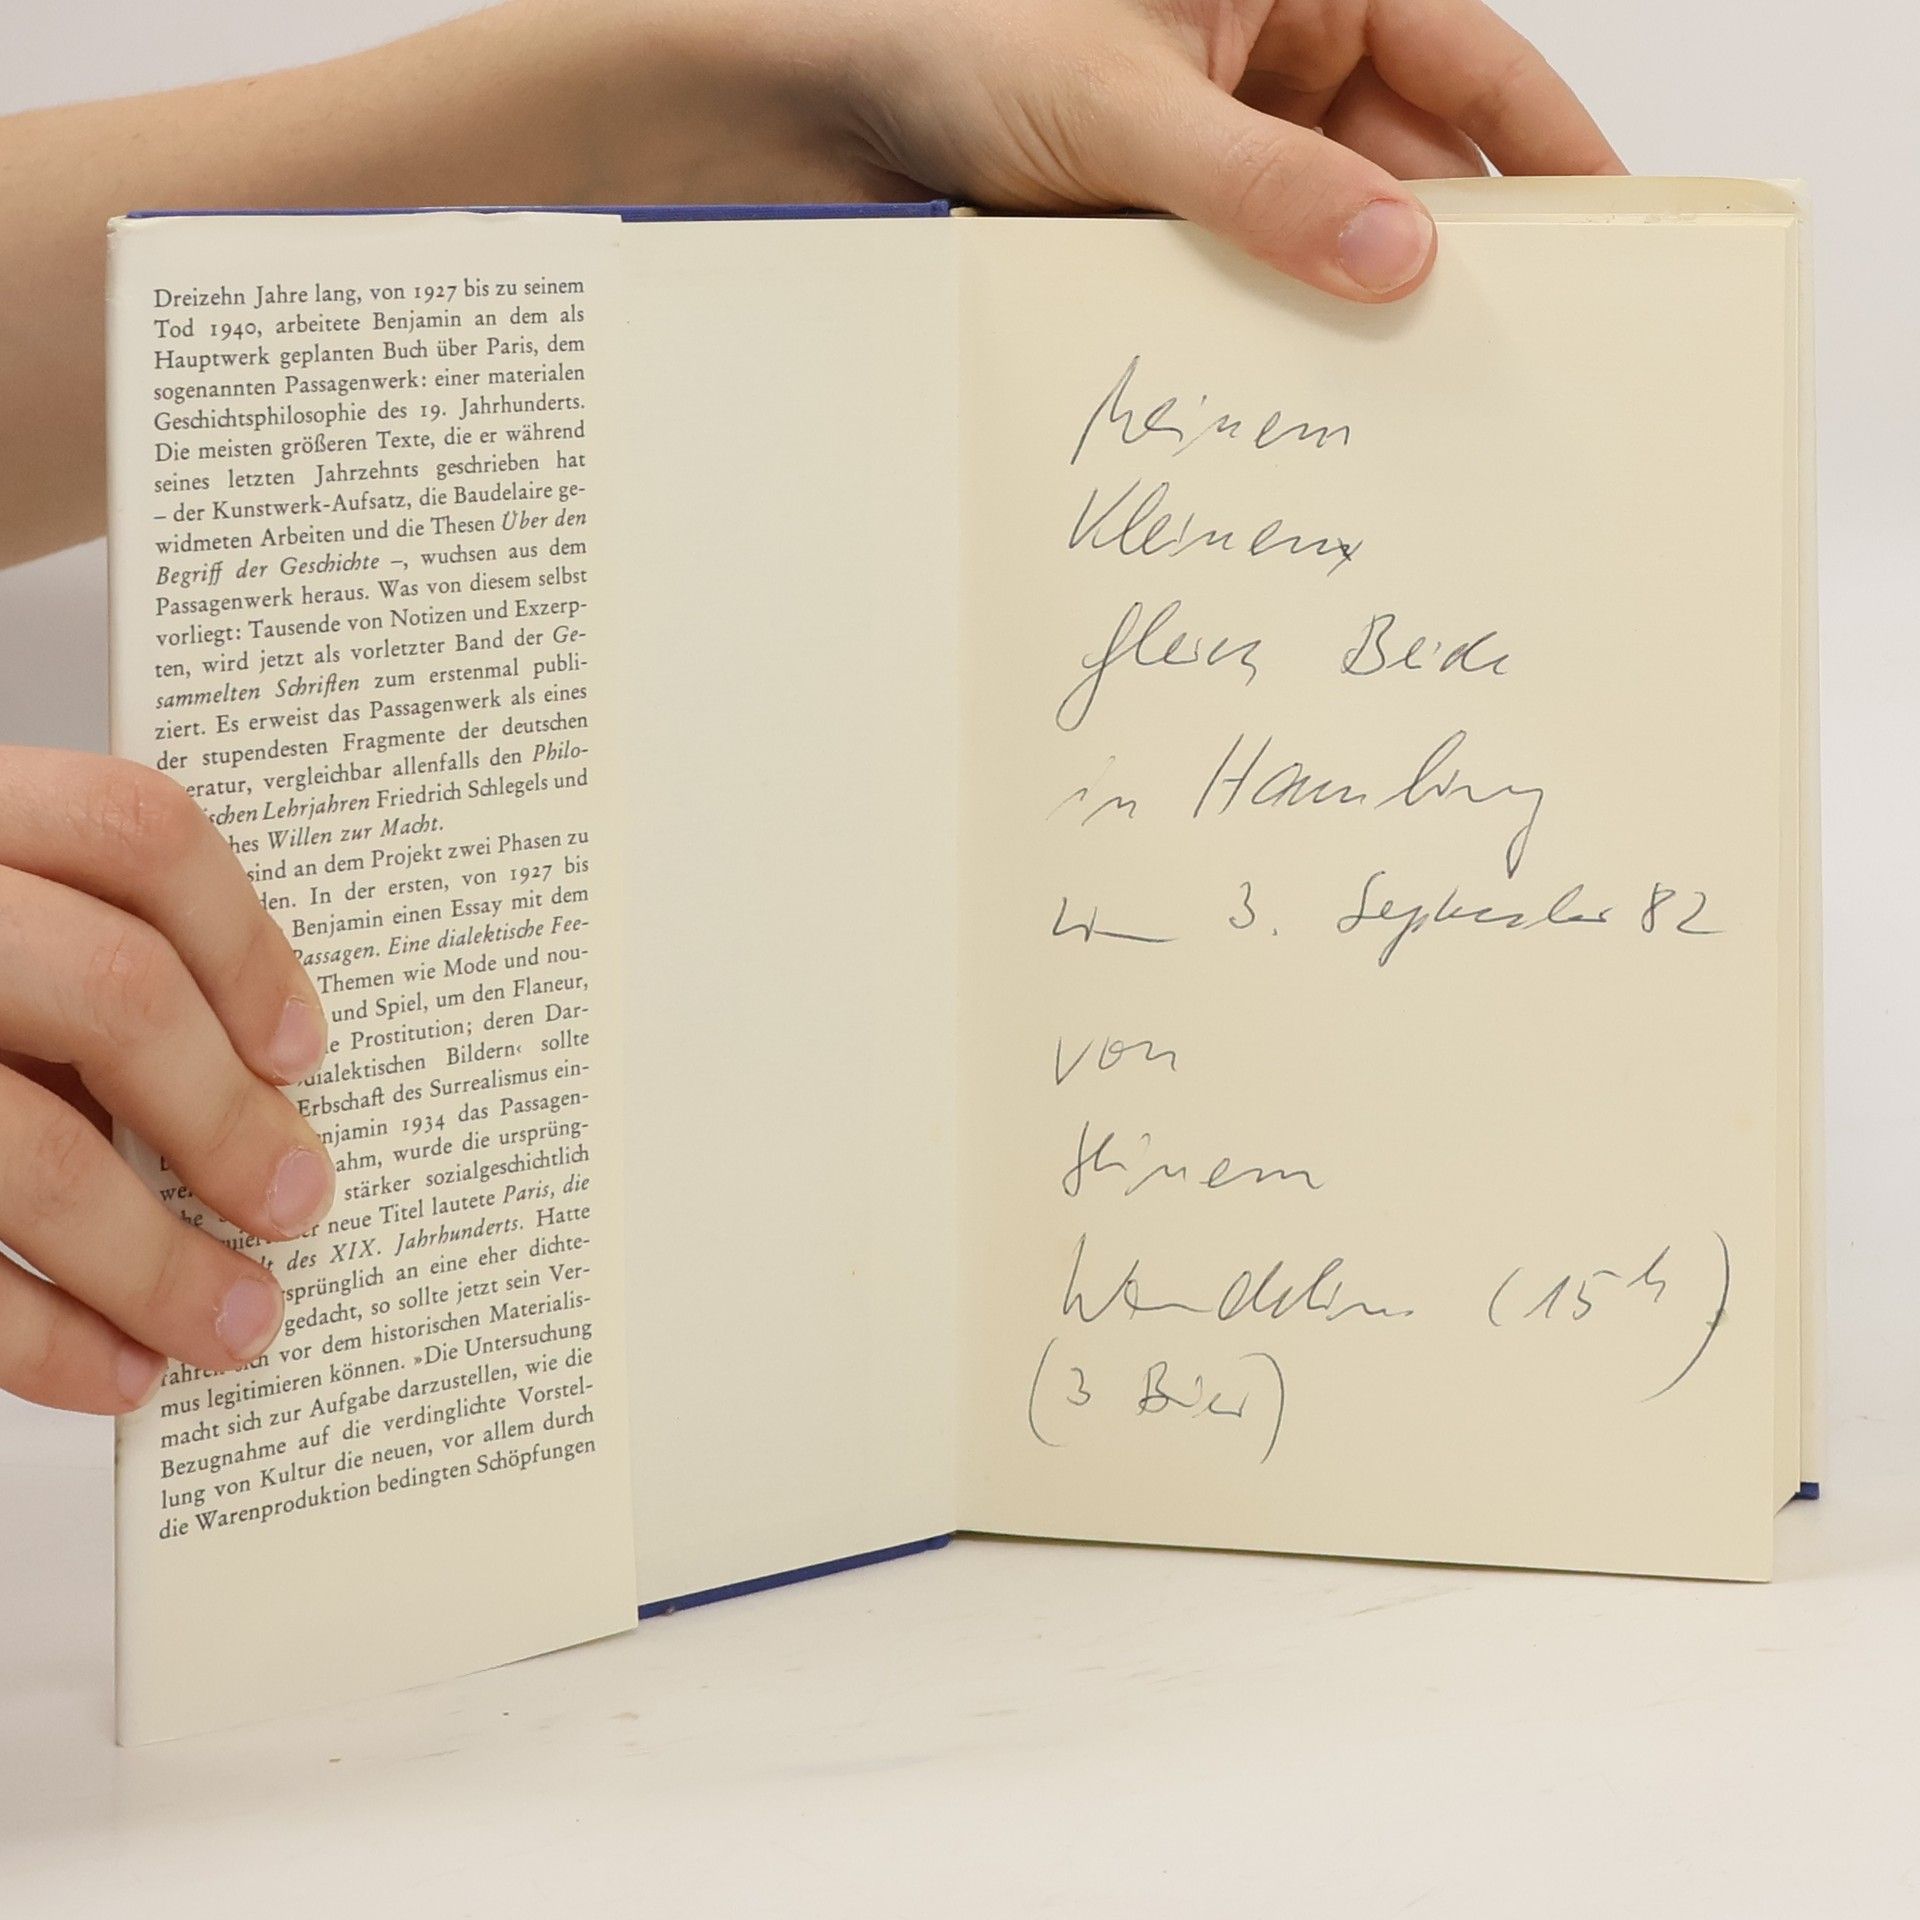 Dreizehn Jahre lang, von 1927 bis zu seinem
Tod 1940, arbeitete Benjamin an dem als
Hauptwerk geplanten Buch über Paris, dem
sogenannten Passagenwerk: einer materialen
Geschichtsphilosophie des 19. Jahrhunderts.
Die meisten größeren Texte, die er während
seines letzten Jahrzehnts geschrieben hat
– der Kunstwerk-Aufsatz, die Baudelaire ge-
widmeten Arbeiten und die Thesen Über den
Begriff der Geschichte –, wuchsen aus dem
Passagenwerk heraus. Was von diesem selbst
vorliegt: Tausende von Notizen und Exzerp-
ten, wird jetzt als vorletzter Band der Ge-
sammelten Schriften zum erstenmal publi-
ziert. Es erweist das Passagenwerk als eines
der stupendesten Fragmente der deutschen
eratur, vergleichbar allenfalls den Philo-
ischen Lehrjahren Friedrich Schlegels und
hes Willen zur Macht.
sind an dem Projekt zwei Phasen zu
den. In der ersten, von 1927 bis
Benjamin einen Essay mit dem
Passagen. Eine dialektische Fee-
Themen wie Mode und nou-
und Spiel, um den Flaneur,
ie Prostitution; deren Dar-
›dialektischen Bildern‹ sollte
Erbschaft des Surrealismus ein-
njamin 1934 das Passagen-
ahm, wurde die ursprüng-
stärker sozialgeschichtlich
er neue Titel lautete Paris, die
dt des XIX. Jahrhunderts. Hatte
rsprünglich an eine eher dichte-
gedacht, so sollte jetzt sein Ver-
fahren sich vor dem historischen Materialis-
mus legitimieren können. »Die Untersuchung
macht sich zur Aufgabe darzustellen, wie die
Bezugnahme auf die verdinglichte Vorstel-
lung von Kultur die neuen, vor allem durch
die Warenproduktion bedingten Schöpfungen
Meinem
Kleinen
Beide
in Hamburg
3. September 82
von
Wendelin (15 h)
(3 Bier)